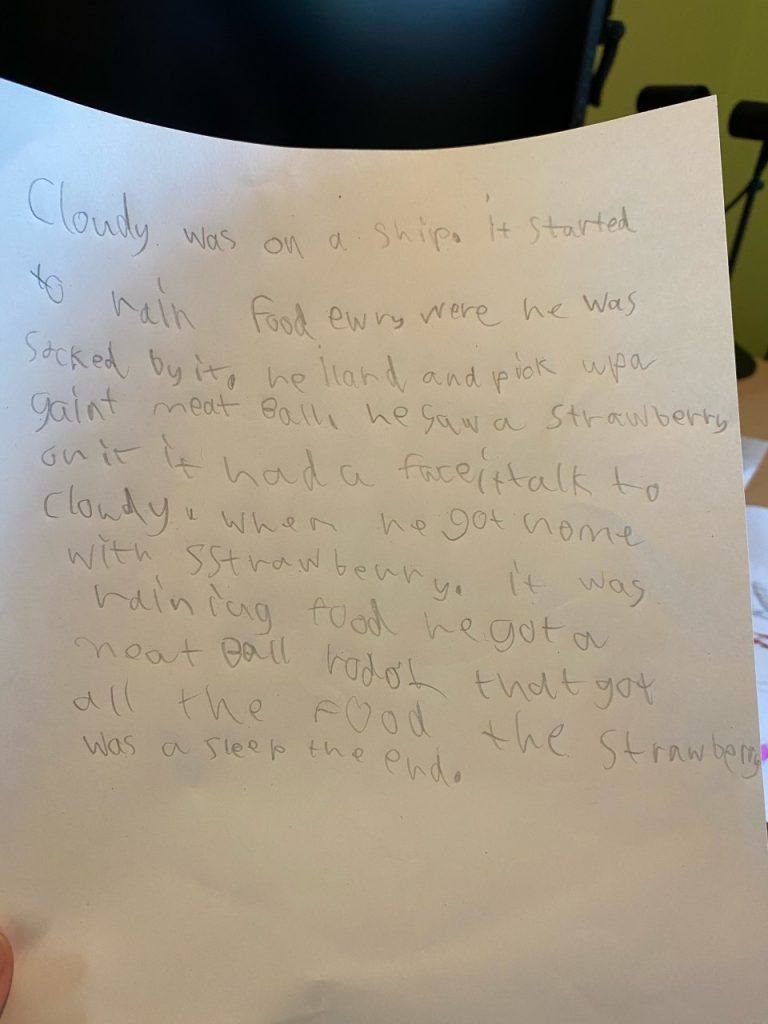 Cloudy was on a ship. it started
to rain food ewry were he was
socked by it. he iland and pick upa
gaint meat Ball, he saw a strawberry
on it it had a face it talk to
Cloudy. when he got home
with sstrawberry. it was
raining food he got a
meat Ball rodot that got
all the FOOD the strawberry
was a sleep the end.